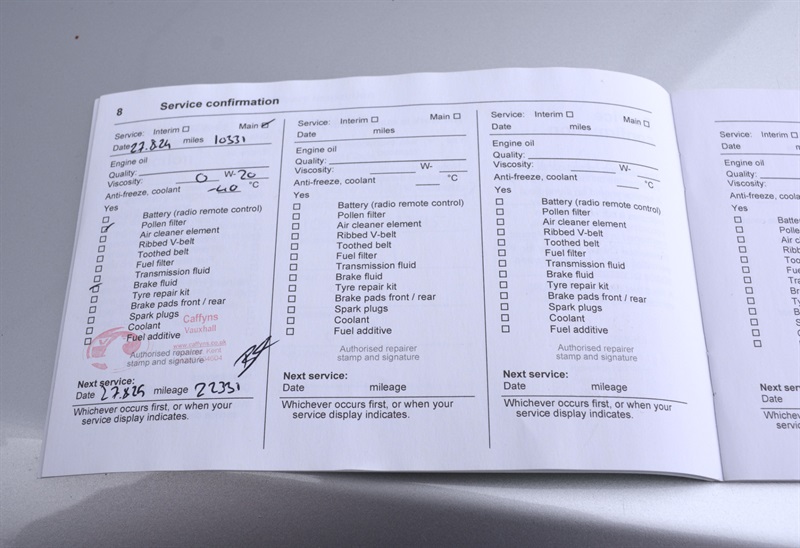 8 Service confirmation
Service: Interim Main
Date 27.8.24 miles 10331
Engine oil
Quality:
Viscosity: 0 W- 20
Anti-freeze, coolant -40 °C
Yes
Battery (radio remote control)
Pollen filter
Air cleaner element
Ribbed V-belt
Toothed belt
Fuel filter
Transmission fluid
Brake fluid
Tyre repair kit
Brake pads front / rear
Spark plugs
Coolant
Fuel additive
Caffyns
Vauxhall
Authorised repairer
stamp and signature
Next service:
Date 27.8.25 mileage 22331
Whichever occurs first, or when your
service display indicates.
Service: Interim Main
Date miles
Engine oil
Quality:
Viscosity: W-
Anti-freeze, coolant °C
Yes
Battery (radio remote control)
Pollen filter
Air cleaner element
Ribbed V-belt
Toothed belt
Fuel filter
Transmission fluid
Brake fluid
Tyre repair kit
Brake pads front / rear
Spark plugs
Coolant
Fuel additive
Authorised repairer
stamp and signature
Next service:
Date mileage
Whichever occurs first, or when your
service display indicates.
Service: Interim Main
Date miles
Engine oil
Quality:
Viscosity: W-
Anti-freeze, coolant °C
Yes
Battery (radio remote control)
Pollen filter
Air cleaner element
Ribbed V-belt
Toothed belt
Fuel filter
Transmission fluid
Brake fluid
Tyre repair kit
Brake pads front / rear
Spark plugs
Coolant
Fuel additive
Authorised repairer
stamp and signature
Next service:
Date mileage
Whichever occurs first, or when your
service display indicates.
Service: Interim
Date
Engine oil
Quality:
Viscosity:
Anti-freeze,
Yes
Next service:
Date
Whichever
service